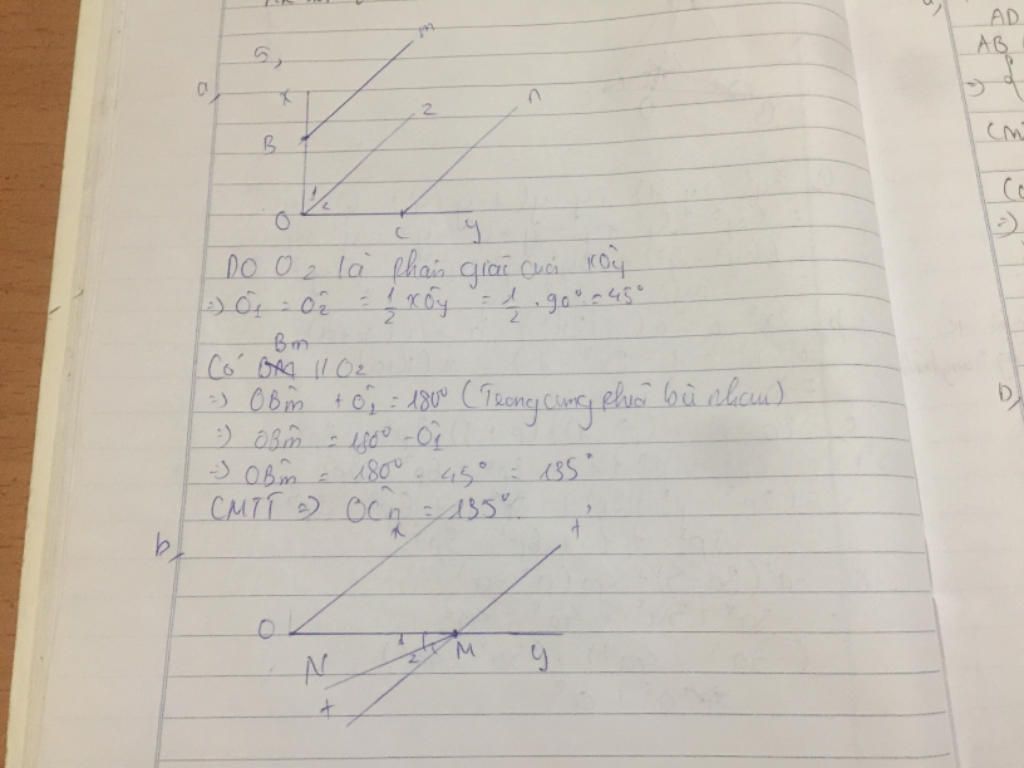 5,
a,
m
x
z
n
B
1
2
O
C
y
DO Oz là phân giác của xÔy
=> Ô1 = Ô2 = 1/2 xÔy = 1/2 . 90° = 45°
Bm
Có // Oz
=> OB̂m + Ô1 = 180° (Trong cùng phía bù nhau)
=> OB̂m = 180° - Ô1
=> OB̂m = 180° - 45° = 135°
CMTT => OĈn = 135°
b,
x
t
O
1
2
M
y
N
t
a,
AD
AB
=>
=>
D,